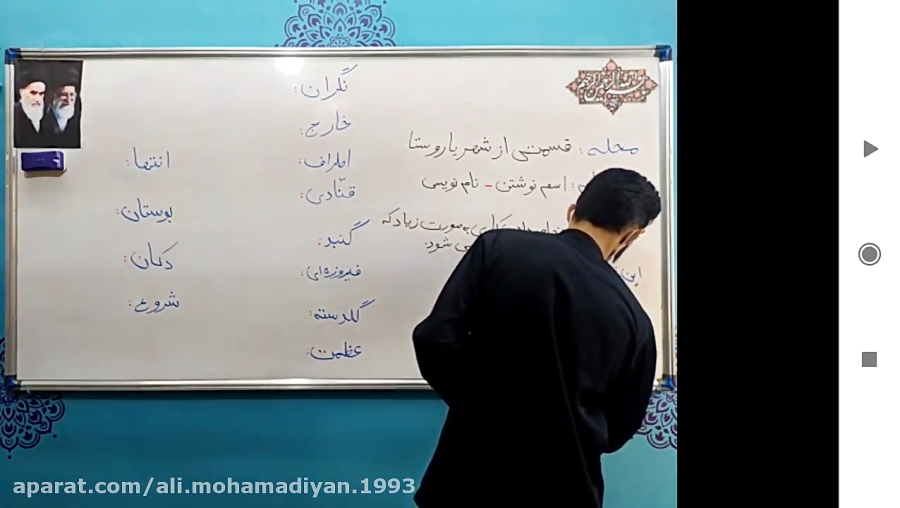 محله: قسمتی از شهر یا روستا
: اسم نوشتن - نام نویسی
به صورت زیاد که
می شود.
این
نگران:
خارج:
اطراف:
قنّادی:
گنبد:
فیروزه‌ای:
گلدسته:
عظمت:
انتها:
بوستان:
دکان:
شروع:
aparat.com/ali.mohamadiyan.1993